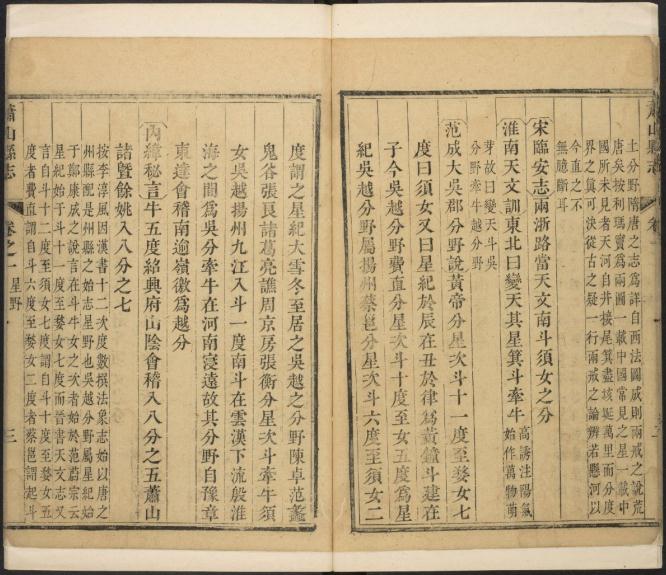 蕭山縣志
卷一
土分野隋唐之志爲詳自西法圖成則兩戒之說荒
唐矣按利瑪竇爲兩圖一載中國常見之星一載中
國所未見者天河自井接尾箕盡垓埏萬里而分度
界之眞可決從古之疑一行兩戒之論辨若懸河以
今直之不
無臆斷耳
宋臨安志兩浙路當天文南斗須女之分
淮南天文訓東北曰變天其星箕斗牽牛高誘注陽氣
始作萬物萌
芽故曰變天斗吳
分野牽牛越分野
范成大吳郡分野說黃帝分星次斗十一度至婺女七
度曰須女又曰星紀於辰在丑於律爲黃鐘斗建在
子今吳越分野費直分星次斗十度至女五度爲星
紀吳越分野屬揚州蔡邕分星次斗六度至須女二
度謂之星紀大雪冬至居之吳越之分野陳卓范蠡
鬼谷張良諸葛亮譙周京房張衡分星次斗牽牛須
女吳越揚州九江入斗一度南斗在雲漢下流般淮
海之間爲吳分牽牛在河南寖遠故其分野自豫章
東達會稽南逾嶺徼爲越分
內緯秘言牛五度紹興府山陰會稽入八分之五蕭山
諸曁餘姚入八分之七
按李淳風因漢書十二次度數撰法象志始以唐之
州縣配是州縣之始志星野也吳越分野屬星紀始
于鄭康成之說言在斗牛女之次者始於范蔚宗云
星紀始于斗十一度至婺女七度而晉書天文志又
言自斗十二度至須女七度謂自斗十度至婺女五
度者費直謂自斗六度至婺女二度者蔡邕謂起斗
蕭山縣志
卷之一
星野
三